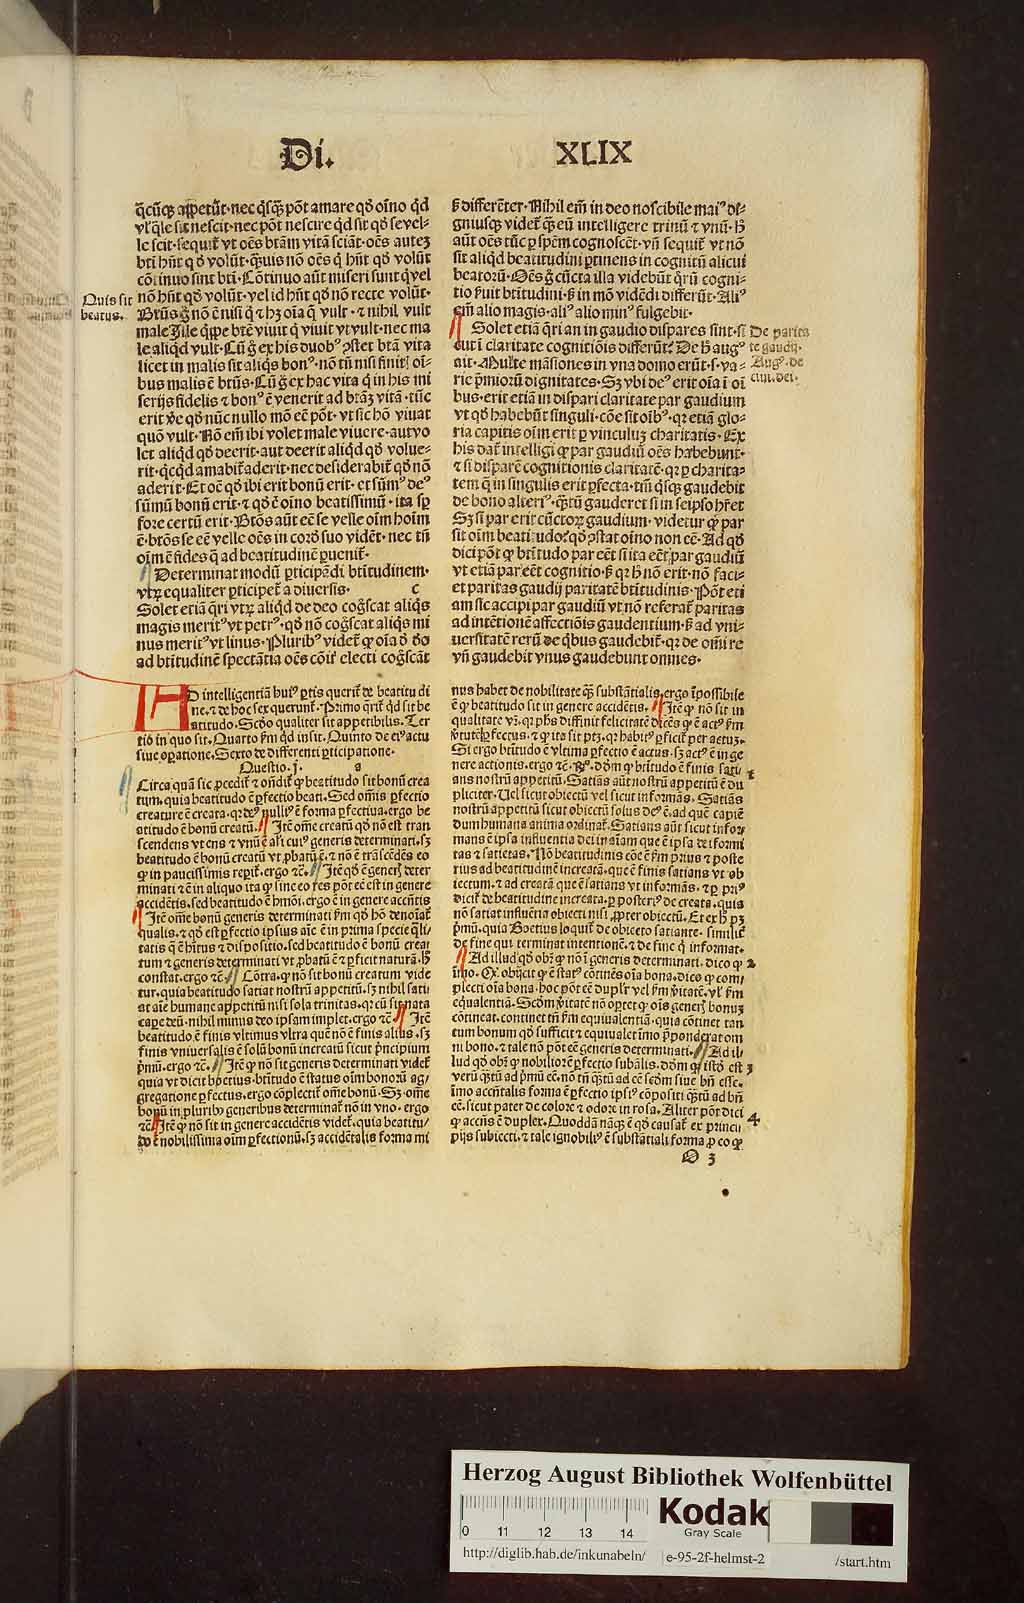 Di. XLIX
q̄cūq̨ appetūt·nec q̄sq̄ȝ pōt amare qď oīno qď
vl' q̄le sit nescit·nec pōt nescire qď sit qď se vel-
le scit·sequit̄ vt oēs btām vitā sciāt·oēs auteȝ
bti hn̄t qď volūt·q̄uis nō oēs q̄ hn̄t qď volūt
cōtinuo sint bti·Cōtinuo aūt miseri sunt q̄ vel
nō hn̄t qď volūt·vel id hn̄t qď nō recte volūt·
Quis sit
beatus.
Btūs g̊ nō ē nisi q̄ ⁊ hȝ oīa q̄ vult·⁊ nihil vult
male Ille q̄ppe btē viuit q̄ viuit vt vult·nec ma
le aliqď vult·Cū g̊ ex his duobꝰ ꝯstet btā vita
licet in malis sit aliqs bonꝰ·nō tn̄ nisi finit' oī-
bus malis ē btūs·Cū g̊ ex hac vita q̄ in his mi
serijs fidelis ⁊ bonꝰ ē venerit ad btāȝ vitā·tūc
erit v̄e qď nūc nullo mō eē pōt·vt sic hō viuat
quō vult·Nō em̄ ibi volet male viuere·aut vo
let aliqd qď deerit·aut deerit aliqd qď volue-
rit·qcqd amabit̄ aderit·nec desiderabit̄ qď nō
aderit·Et oē qď ibi erit bonū erit·et sūmꝰ deꝰ
sūmū bonū erit·⁊ qď ē oīno beatissimū·ita sp̄
fore certū erit·Btōs aūt eē se velle oīm hoīm
ē·btōs se eē velle oēs in cordꝭ suo vidēt·nec tn̄
oīm ē fides q̄ ad beatitudinē ꝑuenit̄·
Determinat modū ꝑticipēdi btītudinem·
vtrȝ equaliter ꝑticipet̄ a diuersis· c
Solet etiā q̄ri vtrȝ aliqd de deo cog̊scat aliqs
magis meritꝰ vt petrꝰ·qď nō cog̊scat aliqs mi
nus meritꝰ vt linus·Pluribꝰ videt̄ ꝙ oīa
ad btitudinē spectātia oēs cōit' electi cog̊scāt
ß differēter·Nihil em̄ in deo noscibile maiꝰ di-
gniusq̨ videt̄ q̄ȝ eū intelligere trinū ⁊ vnū·h̄
aūt oēs tūc ꝑ spēm cognoscēt·vn̄ sequit̄ vt nō
sit aliqd beatitudini ꝑtinens in cognitū alicui
beatorū·Oēs g̊ cūcta illa videbūt q̄rū cogni-
tio ß̄uit btitudini·ß in mō vidēdi differūt·Aliꝰ
em̄ alio magis·aliꝰ alio minꝰ fulgebit·
Solet etiā q̄ri an in gaudio dispares sint·si
De parita
te gaudij.
cut ī claritate cognitiōis differūt? De h̄ augꝰ
Augꝰ. de
ciui. dei.
ait·Multe māsiones in vna domo erūt·s·va-
rie p̄miorū dignitates·Sȝ vbi deꝰ erit oīa ī oī
bus·erit etiā in dispari claritate par gaudium
vt qď habebūt singuli·cōe sit oībꝰ·qr etiā glo-
ria capitis oīm erit ꝑ vinculuȝ charitatis·Ex
his dat̄ intelligi ꝙ par gaudiū oēs habebunt·
⁊ si disparē cognitionis claritatē·qr ꝑ charita-
tem q̄ in singulis erit ꝑfecta·tm̄ q̄sq̨ gaudebit
de bono alteriꝰ·q̄ȝtū gauderet si in seipso hr̄et
Sȝ si par erit cūctorȝ gaudium·videtur ꝙ par
sit oīm beatitudo? qď ꝯstat oīno non eē·Ad qď
dici pōt ꝙ btītudo par eēt si ita eēt par gaudiū
vt etiā par eēt cognitio·ß qr h̄ nō erit·nō faci-
et paritas gaudij paritatē btītudinis·Pōt eti
am sic accipi par gaudiū vt nō referat̄ paritas
ad intētionē affectiōis gaudentium·ß ad vni-
uersitatē rerū de q̄bus gaudebit̄·qr de om̄i re
vn̄ gaudebit vnus gaudebunt omnes·
AD intelligentiā huiꝰ ꝑtis querit̄ de beatitu di
ne.⁊ de hoc sex querunt̄.Primo q̄rit̄ qd sit be
atitudo.Scďo qualiter sit appetibilis.Ter
tio in quo sit.Quarto ẜm qd in sit.Quinto de eiꝰ actu
siue oꝑatione.Sexto de differenti ꝑticipatione.
Questio.j. a
Circa quā sic ꝓcedit̄ ⁊ on̄dit̄ ꝙ beatitudo sit bonū crea
tum.quia beatitudo ē ꝑfectio beati.Sed om̄is ꝑfectio
creature ē creata.qr deꝰ nulliꝰ ē forma ꝑfectiua.ergo be
atitudo ē bonū creatū. Itē om̄e creatū qď nō est tran
scendens vt ens ⁊ vnū ē alicuiꝰ generis determinati.sȝ
beatitudo ē bonū creatū vt ꝓbatū ē.⁊ nō ē trāscēdēs eo
ꝙ in paucissimis reꝑit̄.ergo ⁊c̄. Itē qď ē gener' deter
minati ē in aliquo ita ꝙ sine eo res pōt eē est in genere
accidētis.sed beatitudo ē hmōi.ergo ē in genere accn̄tis
Itē om̄e bonū generis determinati ẜm qď hō denoīat̄
qualis.⁊ qď est ꝑfectio ipsius aīe ē in prima specie q̄li
tatis q̄ ē hītus ⁊ dispositio.sed beatitudo ē bonū crea
tum ⁊ generis determinati vt ꝓbatū ē ⁊ ꝑficit naturā.h̄
constat.ergo ⁊c̄. Cōtra.ꝙ nō sit bonū creatum vide
tur.quia beatitudo satiat nostrū appetitū.sȝ nihil sati
at aīe humane appetitū nisi sola trinitas.qr cū sit nata
cape deū.nihil minus deo ipsam implet.ergo ⁊c̄. Itē
beatitudo ē finis vltimus vltra quē nō ē finis alius.sȝ
finis vniuersalis ē solū bonū increatū sicut p̄ncipium
p̄mū.ergo ⁊c̄. Itē ꝙ nō sit generis determinati videt̄
quia vt dicit boetius.btītudo ē status oīm bonorū ag/
gregatione ꝑfectus.ergo cōplectit̄ om̄e bonū.Sȝ om̄e
bonū in pluribꝰ generibus determinat̄ nō in vno.ergo
⁊c̄. Itē ꝙ nō sit in genere accidētis videt̄.quia beatitu/
do ē nobilissima oīm ꝑfectionū.sȝ accidētalis forma mi
nus habet de nobilitate q̄ȝ substātialis.ergo īpossibile
ē ꝙ beatitudo sit in genere accidētis. Itē ꝙ nō sit in
qualitate vr̄.qr phs diffinit felicitatē dicēs ꝙ ē actꝰ ẜm
v̄tutē ꝑfectus.⁊ ꝙ ita sit ptȝ.qr habitꝰ ꝑficit̄ per actuȝ.
Si ergo btītudo ē vltima ꝑfectio ē actus.sȝ actꝰ ē in ge
nere actionis.ergo ⁊c̄. Rº.dōm ꝙ btītudo ē finis satiās
ans nostrū appetitū.Satiās aūt nostrū appetitū ē du
pliciter.Vel sicut obiectū vel sicut informās.Satiās
nostrū appetitū sicut obiectū solus deꝰ ē.ad quē capiē
dum humana anima ordinat̄.Satians aūt sicut infor
mans ē ipsa influentia dei in aīam que ē ipsa deiformi
tas ⁊ satietas. Nō beatitudinis cōe ē ẜm prius ⁊ poste
rius ad beatitudinē increatā.que ē finis satians vt ob
iectum.⁊ ad creatā que ē satians vt informās.⁊ ꝑ priꝰ
dicit̄ de beatitudine increata.ꝑ posteriꝰ de creata.quia
nō satiat influētia obiecti nisi ꝓpter obiectū.Et ex h̄ pȝ
p̄mū.quia Boetius loquit̄ de obiecto satiante.similit̄
de fine qui terminat intentionē.⁊ de fine q̄ informat.
Ad illud qď obȷ̄ ꝙ nō ī generis determinati.dico ꝙ 2
īmo.Qr obȷ̄icit ꝙ ē statꝰ continēs oīa bona.dico ꝙ com
plecti oīa bona.hoc pōt eē dupl'r vel ẜm v̄itatē.vl' ẜm
equalentiā.Scďm v̄itatē nō oportet ꝙ oīs gener' bonuȝ
cōtineat.continet tn̄ ẜm equiualentiā.quia cōtinet tan
tum bonum qď sufficit ⁊ equiualet īmo p̄ponderat om
ni bono.⁊ tale nō pōt eē generis determinati. Ad il/
lud qď obȷ̄ ꝙ nobiliorē ꝑfectio subālis.dōm ꝙ istď est 3
verū q̄ȝtū ad p̄mū eē.nō tn̄ q̄ȝtū ad eē secďm siue bn̄ esse.
īmo accn̄talis forma ē ꝑfectio ipsiꝰ cōpositi q̄ȝtū ad bn̄
eē.sicut patet de colore ⁊ odore in rosa.Aliter pōt dici
ꝙ accn̄s ē duplex.Quoddā nāq̨ ē qď causat̄ ex princi 4
pijs subiecti.⁊ tale ignobiliꝰ ē substātiali forma ꝑ eo ꝙ
O 3
Herzog August Bibliothek Wolfenbüttel
0 11 12 13 14
Kodak
Gray Scale
http://diglib.hab.de/inkunabeln/ e-95-2f-helmst-2 /start.htm